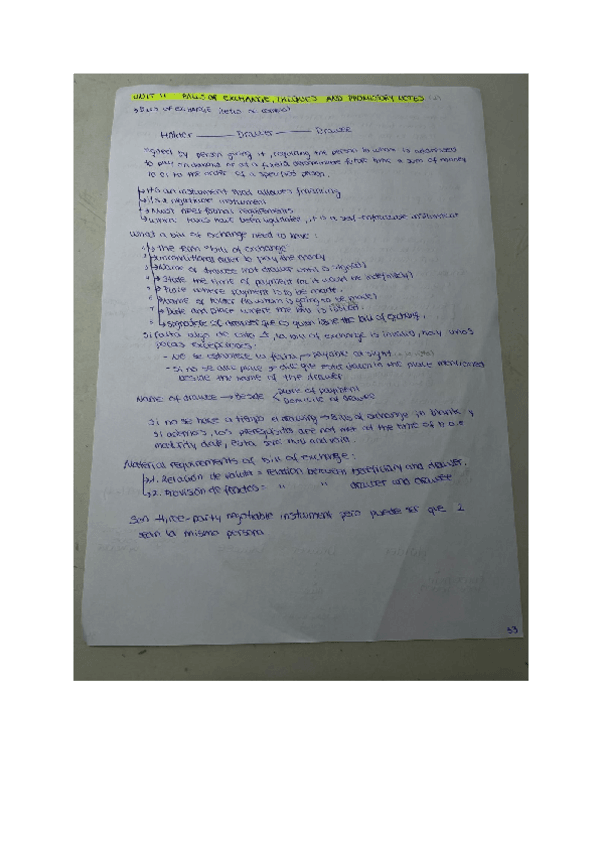 UNIT 11 BILLS OF EXCHANGE, CHEQUES AND PROMISSORY NOTES
BILLS OF EXCHANGE (letra de cambio)
Holder ——— Drawer ——— Drawee
"signed by person giving it, requiring the person to whom is addressed
to pay on demand or at a fixed determinable future time a sum of money
to or to the order of a specified person.
It's an instrument that allows financing
It's a negotiable instrument
Must meet formal requirements
When have been, it is a self-enforceable instrument
What a bill of exchange need to have:
1 the term "bills of exchange"
2 unconditional order to pay the money
3 Name of drawee (not drawer until is signed)
4 State the time of payment (or it would be indefinitely)
5 Place where payment is to be made.
6 Name of holder (to whom is going to be made)
7 Date and place where the bill is issued.
8 signature of drawer que es quien issue the bill of exchange.
Si falta algo de esto, la bill of exchange is invalid, hay unas
pocas excepciones:
- No se establece la fecha, payable at sight
- Si no se dice place se dice que esta valid in the place mentioned
beside the name of the drawer
Name of drawee → Beside < place of payment
Domicile of drawee
Si no se hace a tiempo el drawing → Bills of exchange in blank y
si además, los prerequisits are not met at the time of
maturity date, esta sine null and void.
Material requirements of bill of exchange:
1. Relación de valuta = relation between beneficiary and drawer.
2. Provisión de fondos = " " drawer and drawee
Son three-party negotiable instrument pero puede ser que 2
sean la misma persona
53